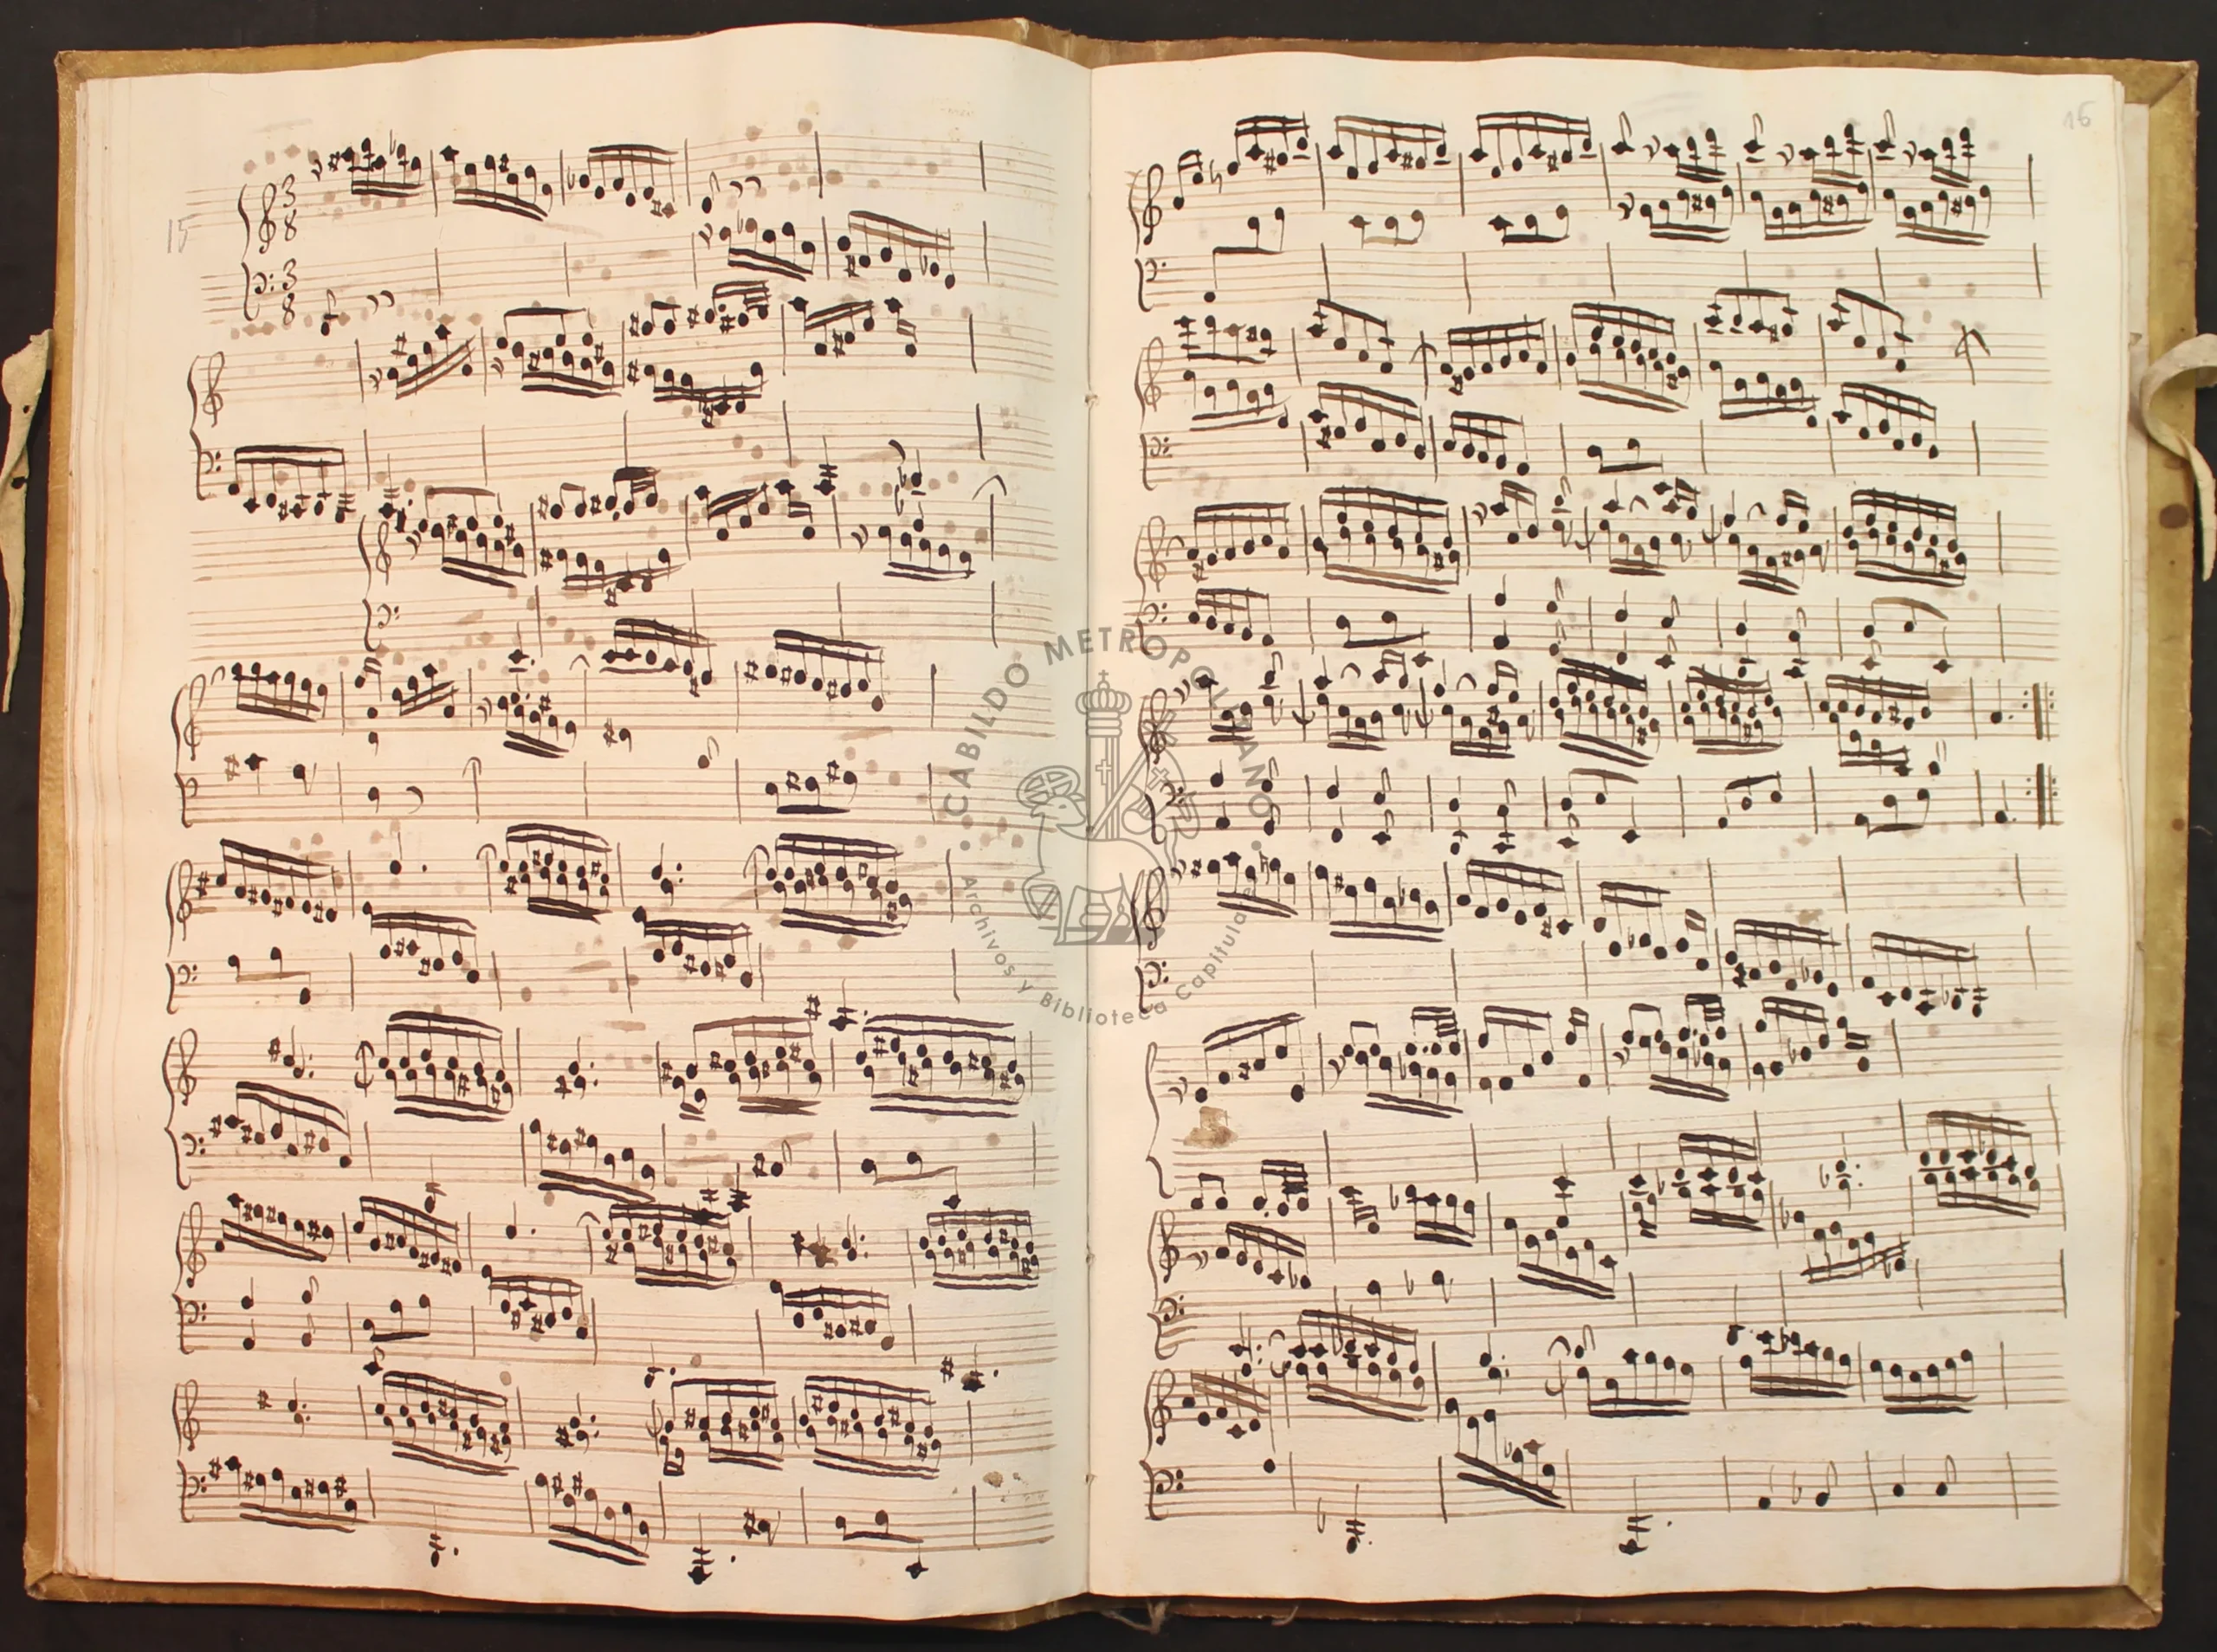 15
3
8
3
8
16
CABILDO METROPOLITANO
Archivos y Biblioteca Capitulares